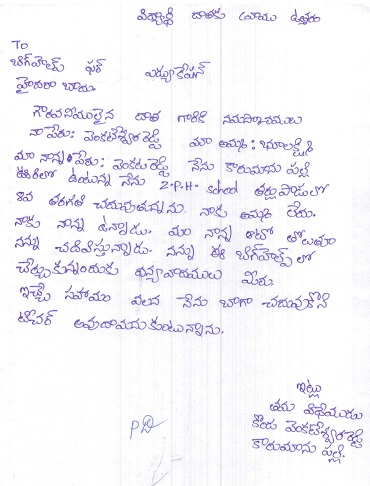 విద్యార్థి దాతకు వ్రాయు ఉత్తరం
To
బిగ్‌హెల్ప్ ఫర్ ఎడ్యుకేషన్
హైదరాబాదు.
గౌరవనీయులైన దాత గారికి నమస్కారములు
నా పేరు: వెంకటేశ్వర రెడ్డి మా అమ్మ:
మా నాన్న పేరు: వెంకట రెడ్డి నేను కారుమాను పల్లి
ఊరిలో ఉంటున్న నేను Z.P.H. school తర్లుపాడులో
తరగతి చదువుతున్నను. నాకు అమ్మ లేరు.
నాకు నాన్న ఉన్నాడు. మా నాన్న ఆటో తోలుతూ
నన్ను చదివిస్తున్నాడు. నన్ను ఈ బిగ్‌హెల్ప్ లో
చేర్చుకున్నందుకు ధన్యవాదములు మీరు
ఇచ్చే సహాయం వలన నేను బాగా చదువుకొని
టీచర్ అవుదామనుకుంటున్నాను.
ఇట్లు
తమ విధేయుడు
వెంకటేశ్వర రెడ్డి
కారుమాను పల్లి.